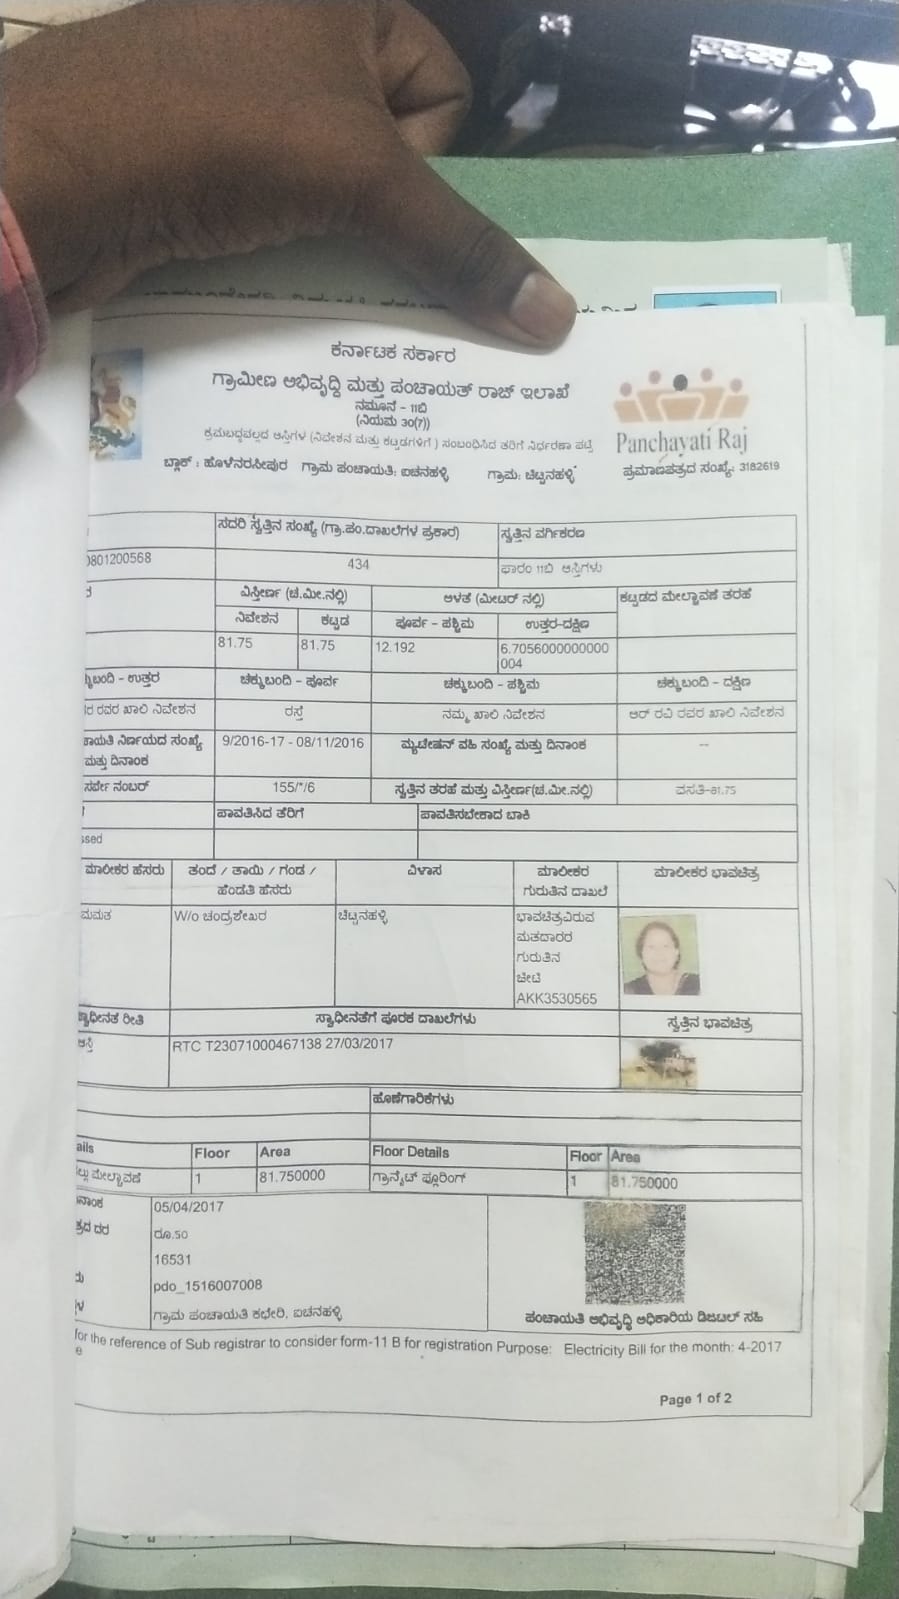 ಕರ್ನಾಟಕ ಸರ್ಕಾರ
ಗ್ರಾಮೀಣ ಅಭಿವೃದ್ಧಿ ಮತ್ತು ಪಂಚಾಯತ್ ರಾಜ್ ಇಲಾಖೆ
ನಮೂನೆ - 11ಬಿ
(ನಿಯಮ 30(7))
ಕ್ರಮಬದ್ಧವಲ್ಲದ ಆಸ್ತಿಗಳ (ನಿವೇಶನ ಮತ್ತು ಕಟ್ಟಡಗಳಿಗೆ) ಸಂಬಂಧಿಸಿದ ತೆರಿಗೆ ನಿರ್ಧರಣಾ ಪಟ್ಟಿ
Panchayati Raj
ಬ್ಲಾಕ್ : ಹೊಳೆನರಸೀಪುರ ಗ್ರಾಮ ಪಂಚಾಯತಿ: ಐಚನಹಳ್ಳಿ ಗ್ರಾಮ: ಚಿಟ್ಟನಹಳ್ಳಿ ಪ್ರಮಾಣಪತ್ರದ ಸಂಖ್ಯೆ: 3182619
ಸದರಿ ಸ್ವತ್ತಿನ ಸಂಖ್ಯೆ (ಗ್ರಾ.ಪಂ.ದಾಖಲೆಗಳ ಪ್ರಕಾರ) ಸ್ವತ್ತಿನ ವರ್ಗೀಕರಣ
0801200568 434 ಫಾರಂ 11ಬಿ ಆಸ್ತಿಗಳು
ವಿಸ್ತೀರ್ಣ (ಚ.ಮೀ.ನಲ್ಲಿ) ಅಳತೆ (ಮೀಟರ್ ನಲ್ಲಿ) ಕಟ್ಟಡದ ಮೇಲ್ಛಾವಣಿ ತರಹೆ
ನಿವೇಶನ ಕಟ್ಟಡ ಪೂರ್ವ - ಪಶ್ಚಿಮ ಉತ್ತರ-ದಕ್ಷಿಣ
81.75 81.75 12.192 6.7056000000000
004
ಬಂದಿ - ಉತ್ತರ ಚಕ್ಕುಬಂದಿ - ಪೂರ್ವ ಚಕ್ಕುಬಂದಿ - ಪಶ್ಚಿಮ ಚಕ್ಕುಬಂದಿ - ದಕ್ಷಿಣ
ರವರ ಖಾಲಿ ನಿವೇಶನ ರಸ್ತೆ ನಮ್ಮ ಖಾಲಿ ನಿವೇಶನ ಆರ್ ರವಿ ರವರ ಖಾಲಿ ನಿವೇಶನ
ಾಯತಿ ನಿರ್ಣಯದ ಸಂಖ್ಯೆ 9/2016-17 - 08/11/2016 ಮ್ಯುಟೇಷನ್ ವಹಿ ಸಂಖ್ಯೆ ಮತ್ತು ದಿನಾಂಕ --
ಮತ್ತು ದಿನಾಂಕ
ಸರ್ವೇ ನಂಬರ್ 155/*/6 ಸ್ವತ್ತಿನ ತರಹೆ ಮತ್ತು ವಿಸ್ತೀರ್ಣ(ಚ.ಮೀ.ನಲ್ಲಿ) ವಸತಿ-81.75
ಪಾವತಿಸಿದ ತೆರಿಗೆ ಪಾವತಿಸಬೇಕಾದ ಬಾಕಿ
ssed
ಮಾಲೀಕರ ಹೆಸರು ತಂದೆ / ತಾಯಿ / ಗಂಡ / ವಿಳಾಸ ಮಾಲೀಕರ ಮಾಲೀಕರ ಭಾವಚಿತ್ರ
ಹೆಂಡತಿ ಹೆಸರು ಗುರುತಿನ ದಾಖಲೆ
ಮಮತ W/o ಚಂದ್ರಶೇಖರ ಚಿಟ್ಟನಹಳ್ಳಿ ಭಾವಚಿತ್ರವಿರುವ
ಮತದಾರರ
ಗುರುತಿನ
ಚೀಟಿ
AKK3530565
ಸ್ವಾಧೀನತೆ ರೀತಿ ಸ್ವಾಧೀನತೆಗೆ ಪೂರಕ ದಾಖಲೆಗಳು ಸ್ವತ್ತಿನ ಭಾವಚಿತ್ರ
ಆಸ್ತಿ RTC T23071000467138 27/03/2017
ಹೊಣೆಗಾರಿಕೆಗಳು
ails Floor Area Floor Details Floor Area
ಮೇಲ್ಛಾವಣಿ 1 81.750000 ಗ್ರಾನೈಟ್ ಫ್ಲೋರಿಂಗ್ 1 81.750000
ನಾಂಕ 05/04/2017
ತ್ರದ ದರ ರೂ.50
16531
pdo_1516007008
ಗ್ರಾಮ ಪಂಚಾಯತಿ ಕಛೇರಿ, ಐಚನಹಳ್ಳಿ
ಪಂಚಾಯತಿ ಅಭಿವೃದ್ಧಿ ಅಧಿಕಾರಿಯ ಡಿಜಿಟಲ್ ಸಹಿ
for the reference of Sub registrar to consider form-11 B for registration Purpose: Electricity Bill for the month: 4-2017
e
Page 1 of 2